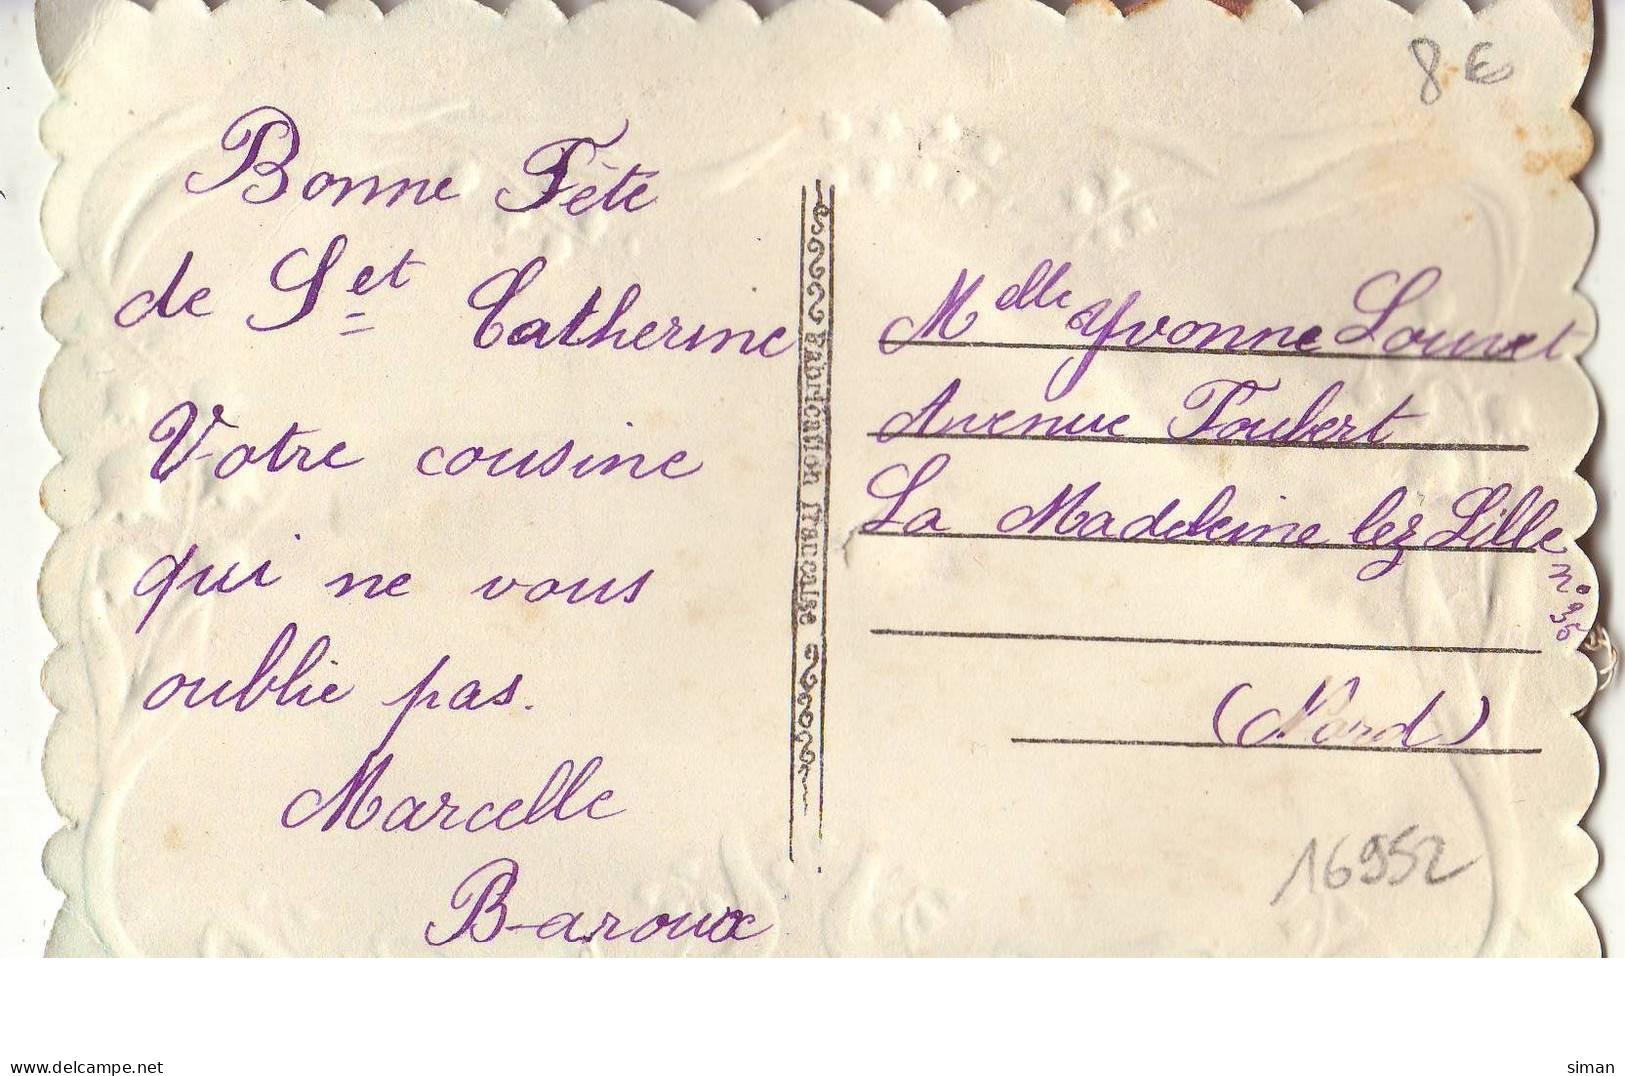 8 €
Bonne Fête
de Set Catherine
Votre cousine
qui ne vous
oublie pas.
Marcelle
Baroux
Fabrication française
Melle Yvonne Louvet
Avenue Foubert
La Madeleine lez Lille
n° 35
(Nord)
16952
delcampe.net
siman